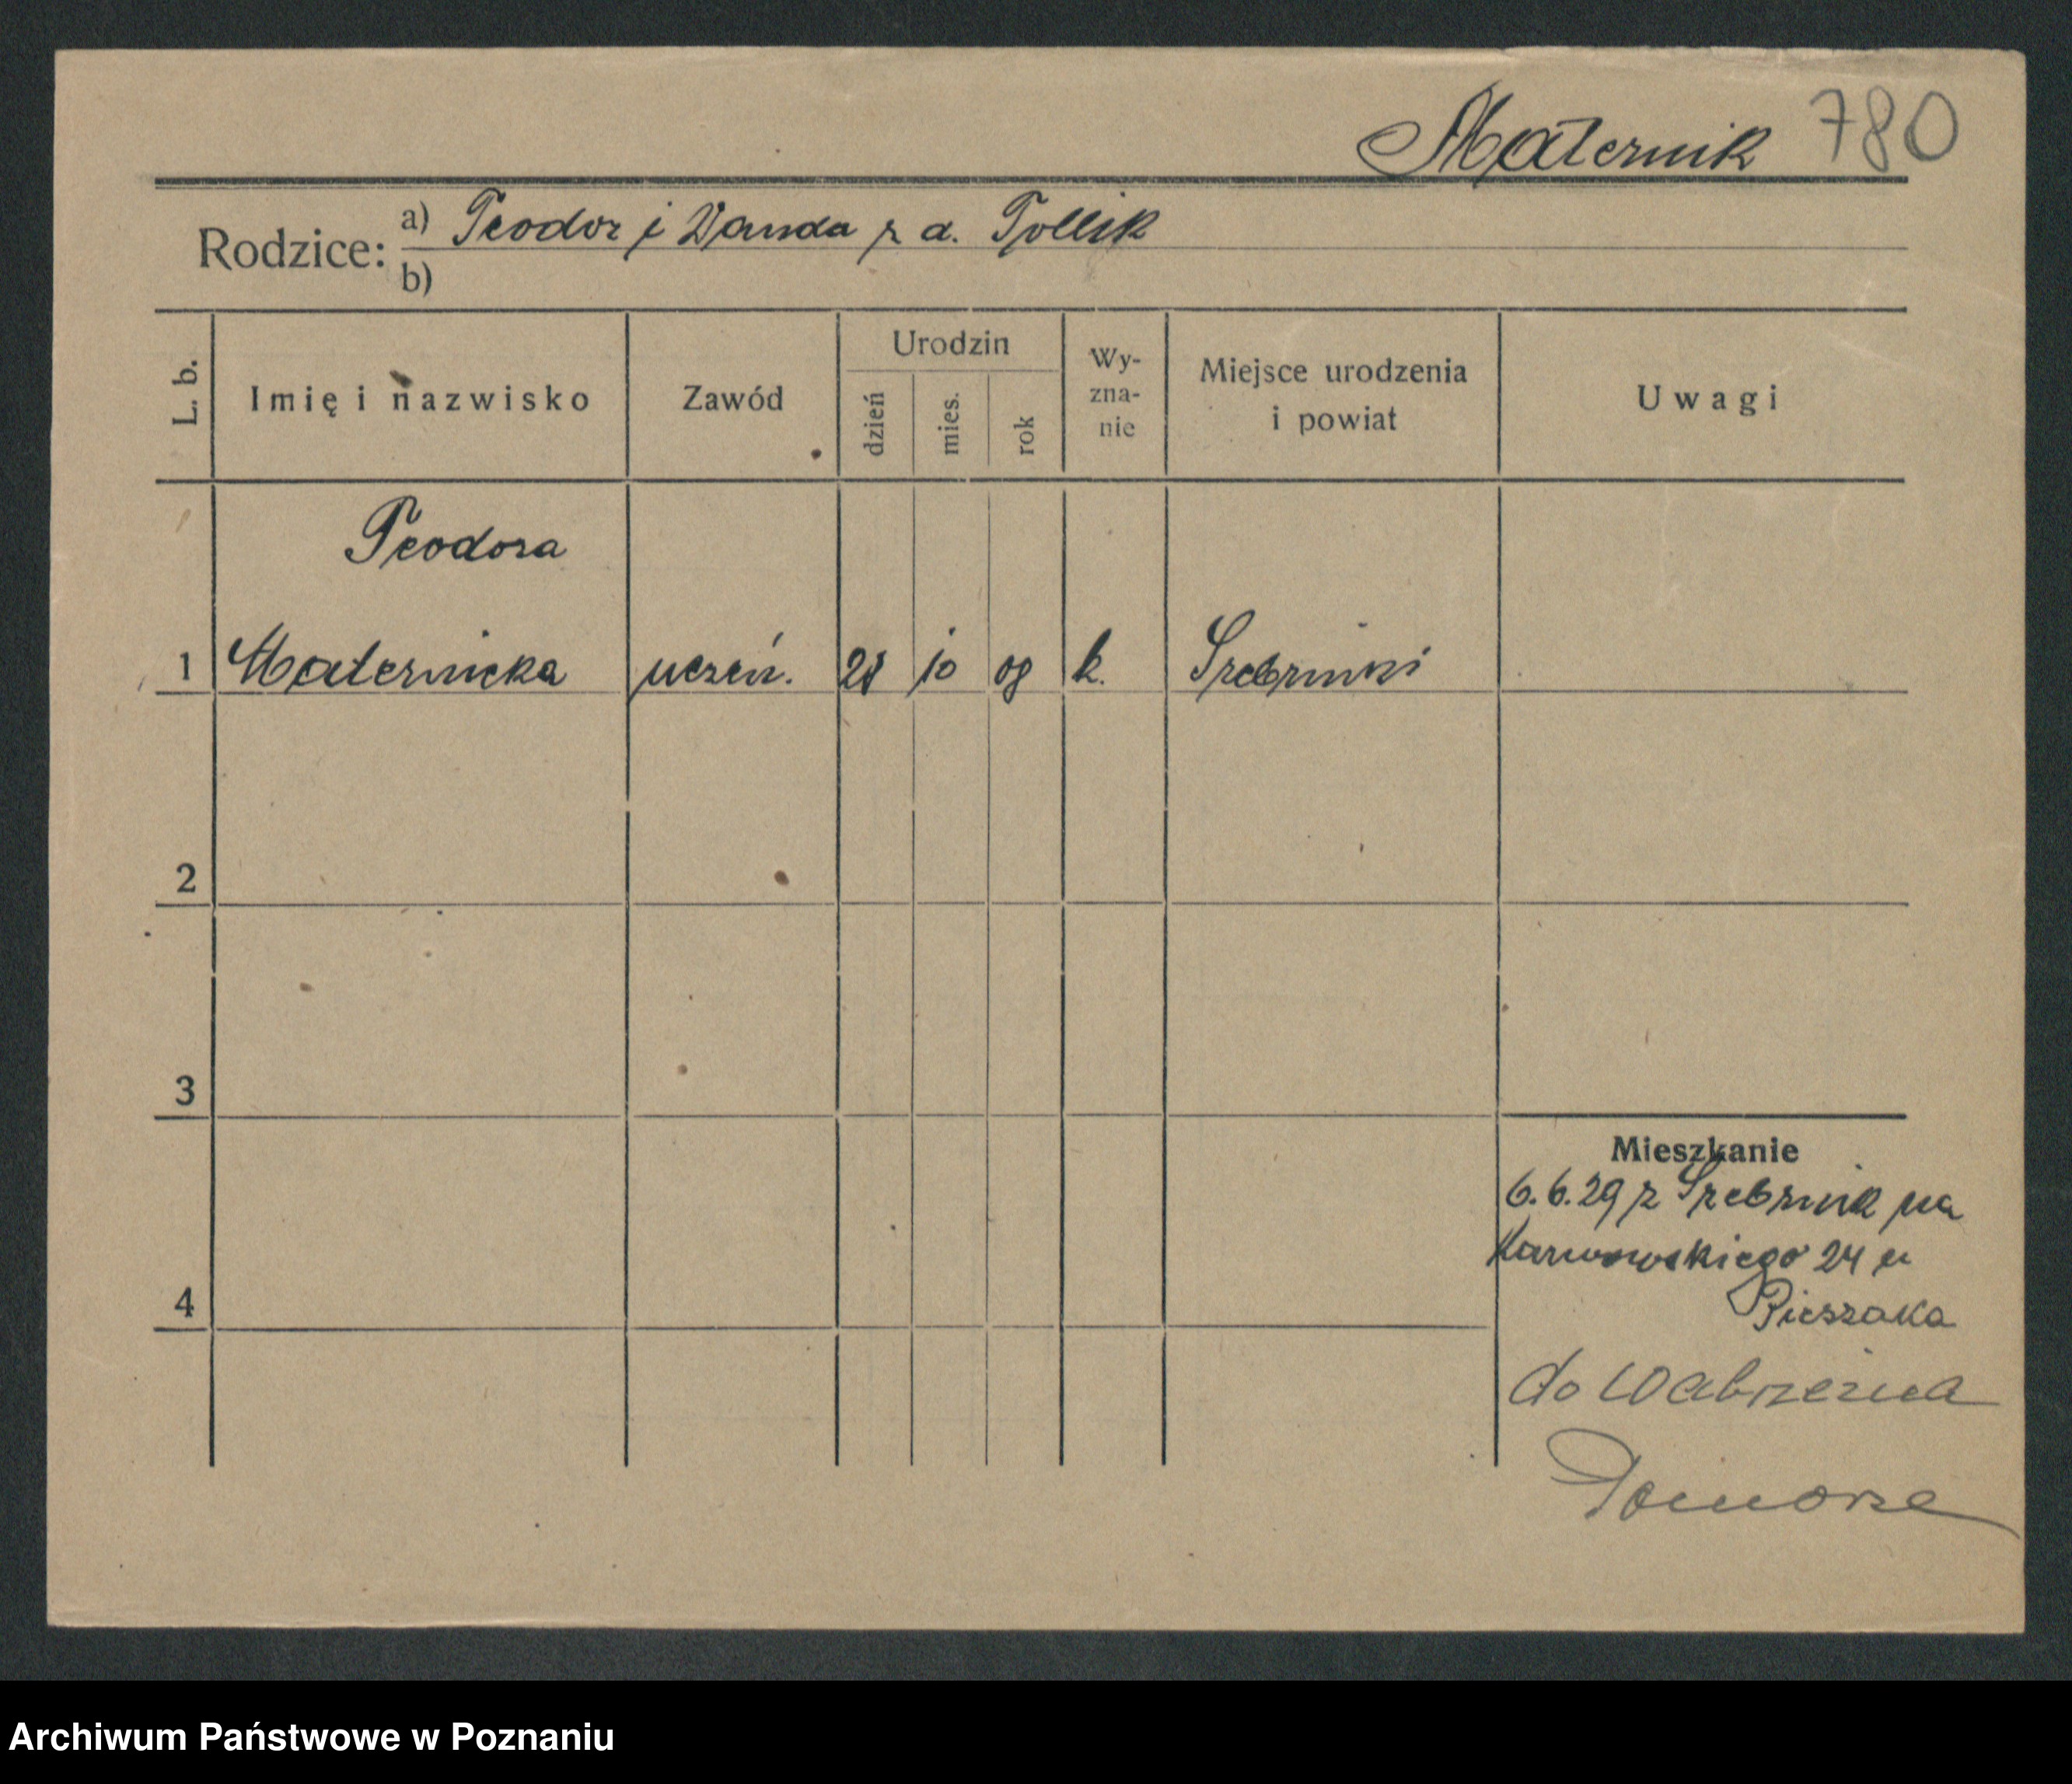 Maternik 780
Rodzice: a) Teodor i Wanda z d. Tollik
b)
L. b. Imię i nazwisko Zawód Urodzin dzień mies. rok Wy-zna-nie Miejsce urodzenia i powiat Uwagi
Teodora
1 Maternicka uczeń. 28 10 08 k. Srebrniki
2
3
Mieszkanie
6.6.29 z Srebrnik na
Karwowskiego 24 u
4 Pieszaka
do Wabrzezna
Pomorze
Archiwum Państwowe w Poznaniu